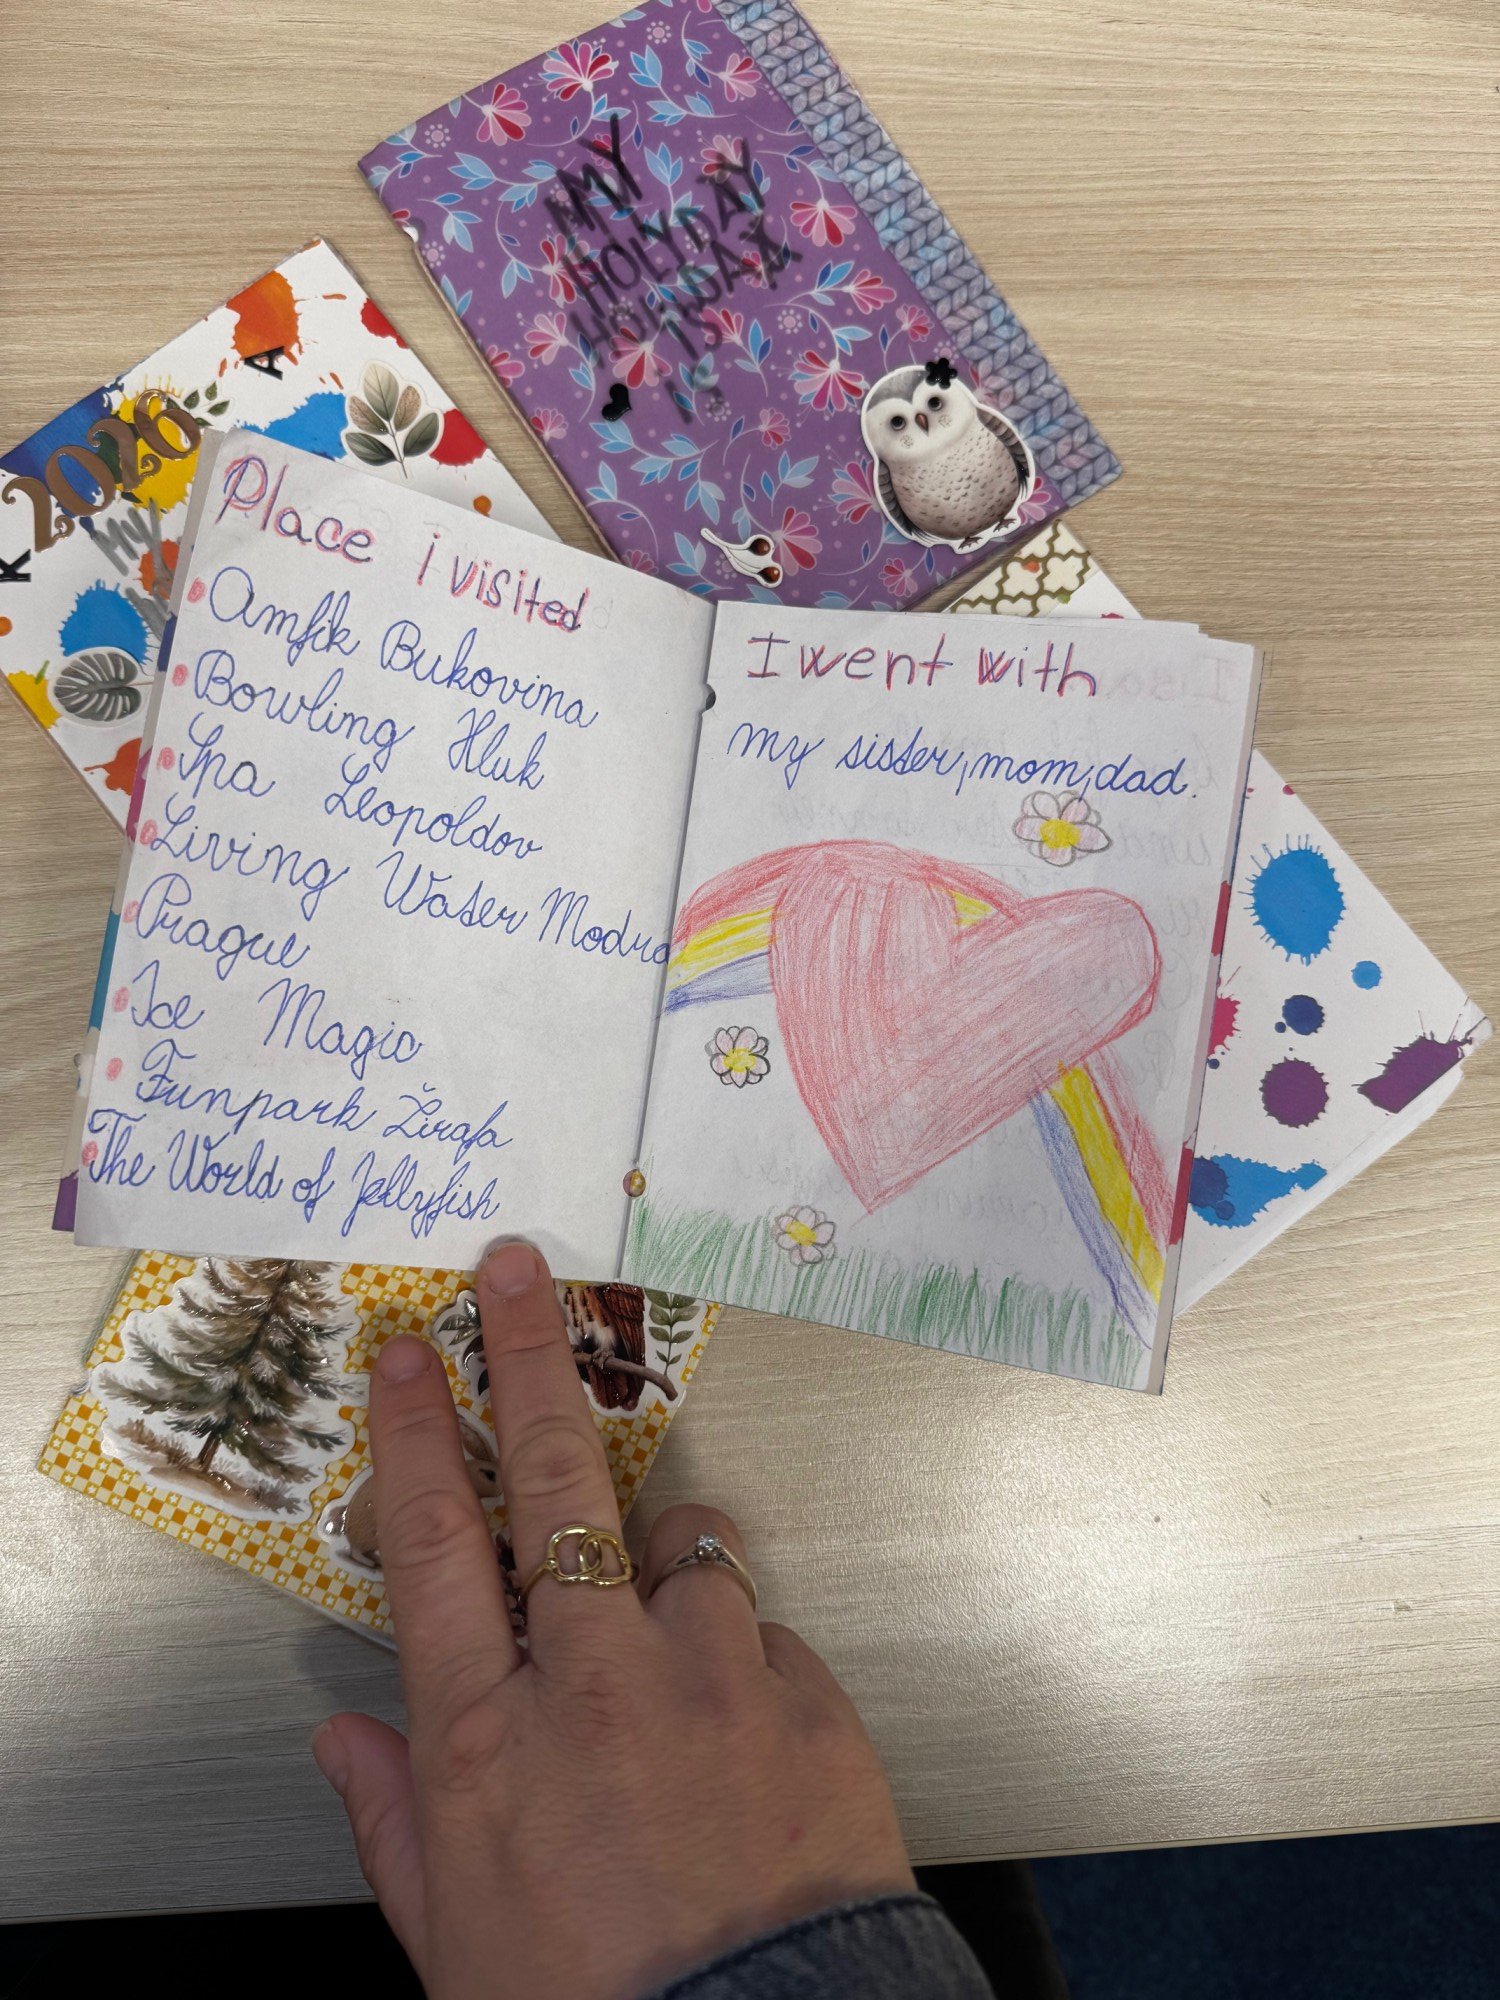 MY
HOLYDAY
IS
A
2026
K
MY
Place i visited
Amfik Bukovina
Bowling Hluk
Spa Leopoldov
Living Water Modra
Prague
Ice Magic
Funpark Žirafa
The World of Jellyfish
I went with
my sister, mom, dad.